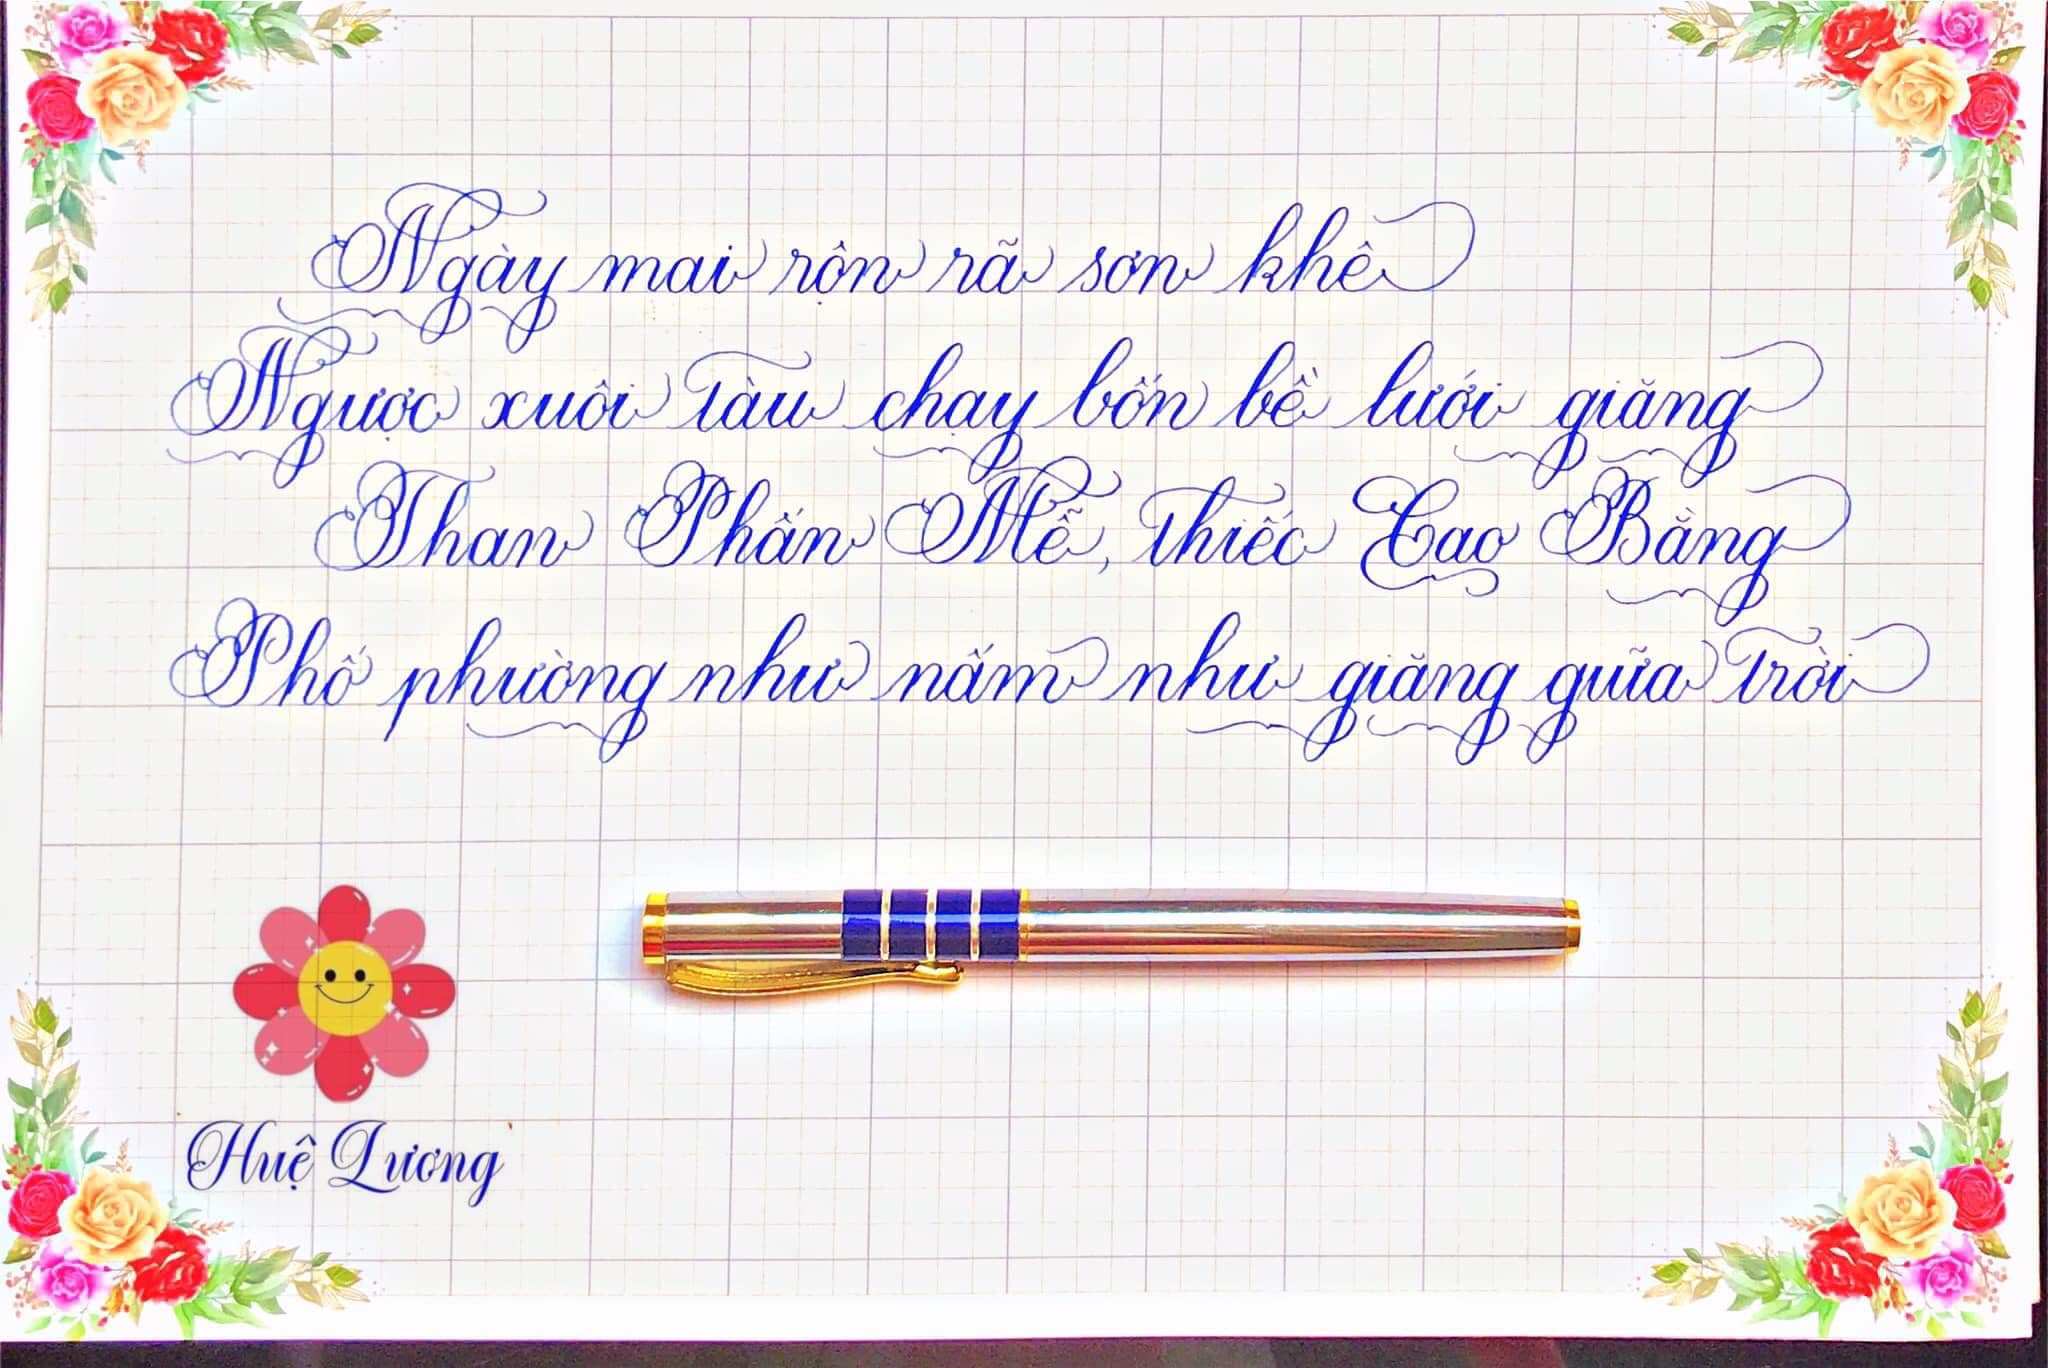 Ngày mai rôn rã sơn khê
Ngược xuôi tàu chạy bốn bề lưới giăng
Than Phấn Mễ, thiếc Cao Bằng
Phố phường như nấm như giăng giữa trời
Huệ Lương